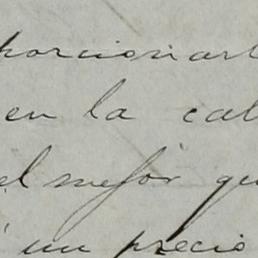 porcionarl
en la cal
el mejor qu
un precio